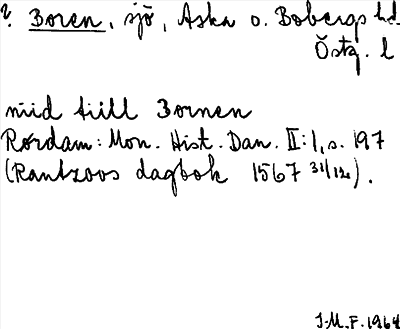 ? Boren, sjö, Aska o. Bobergs hd.
Östg. l
niid tiill Bornen
Rørdam: Mon. Hist. Dan. II:1, s. 197
(Rantzoos dagbok 1567 31/12).
J.M.F. 1964